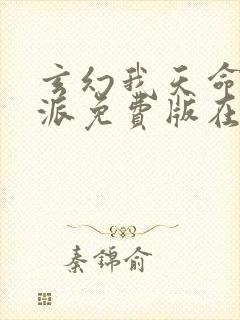 玄幻我天命
派免费版在
秦锦俞